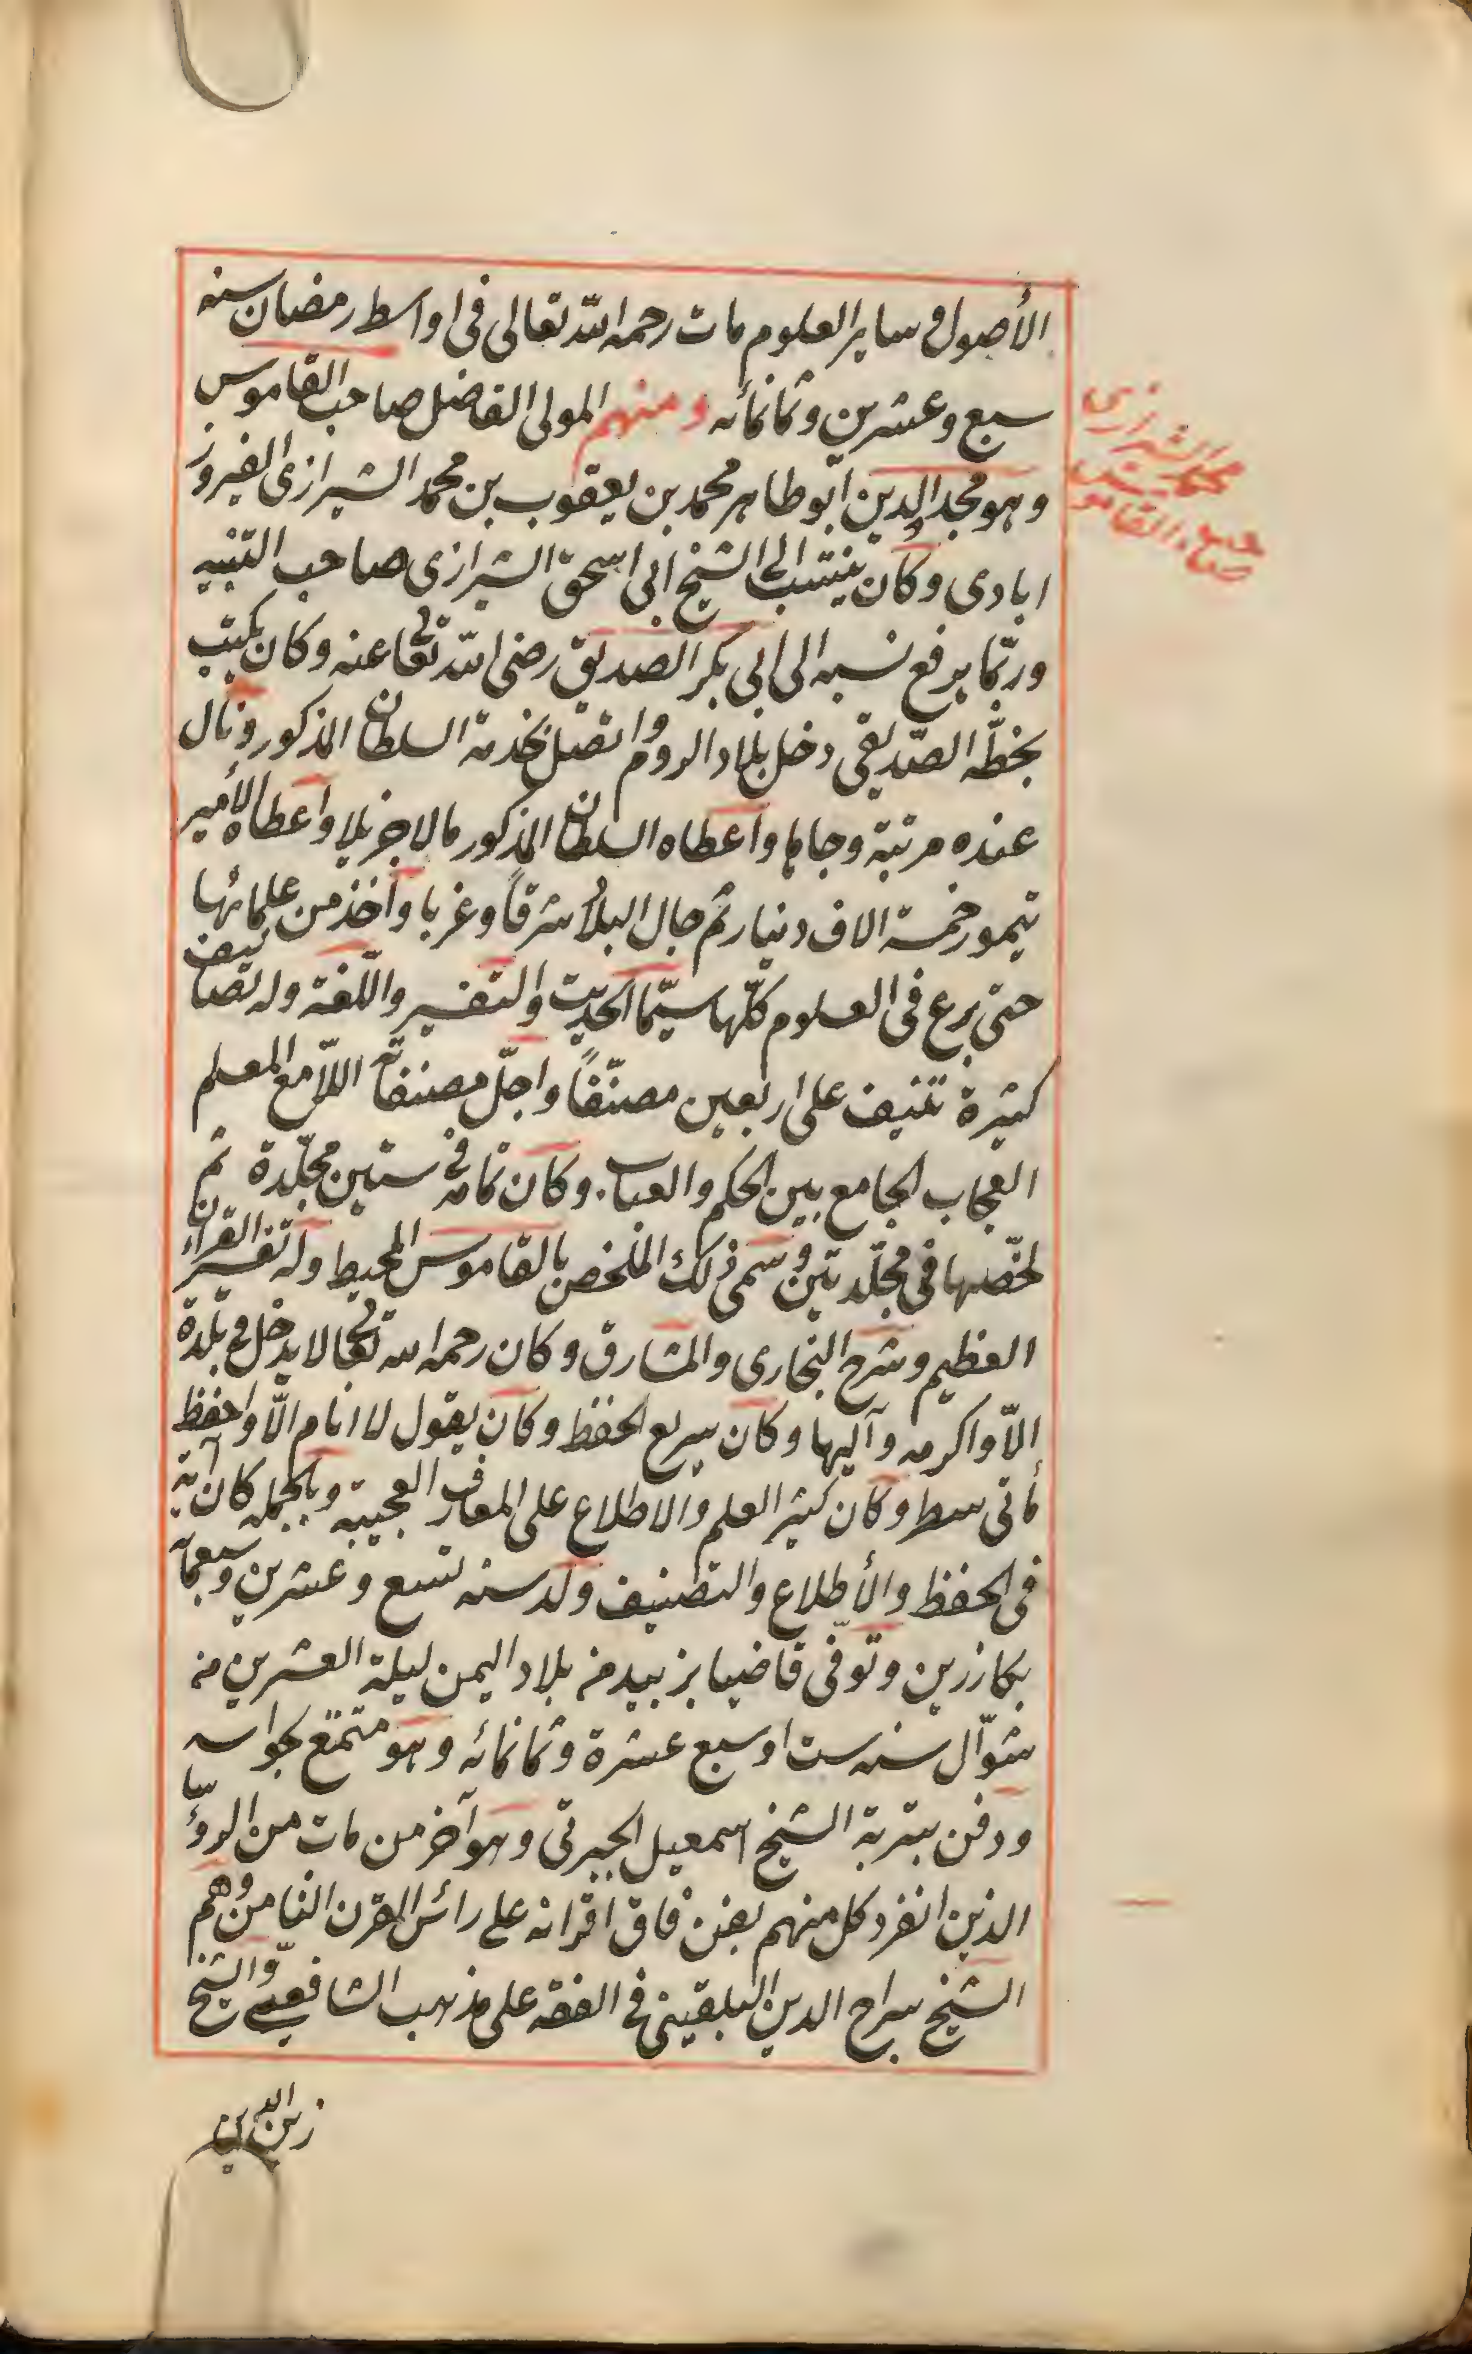 الأصول و ساير العلوم مات رحمه الله تعالى فى اواسط رمضان سنه
سبع وعشرين وثمانمأنه ومنهم المولى الفاضل صاحب القاموس
وهو مجد الدين ابو طاهر محمد بن يعقوب بن محمد الشيرازى الفيروز
ابادى وكان ينتسب الى الشيخ ابى اسحق الشيرازى صاحب التنبيه
وربّما يرفع نسبه الى ابى بكر الصديق رضى الله تعالى عنه وكان يكتب
بخطّه الصّديقى دخل بلاد الروم واتصل بخدمة السلطان المذكور ونال
عنده مرتبة وجاها واعطاه السلطان المذكور مالا جزيلا واعطاه الأمير
تيمور خمسة الاف دينار ثم جال البلاد شرقاً وغربا وأخذ من علمائها
حتى برع فى العلوم كلّها سيّما الحديث والتفسير واللّغة وله تصانيف
كثيرة تنيف على اربعين مصنّفاً واجلّ مصنفاته اللاّمع المعلم
العجاب الجامع بين المحكم والعباب. وكان تمامه فى ستين مجلّدة ثم
لخّصها فى مجلّدتين وسمى ذلك الملخص بالقاموس المحيط وله تفسير القرآن
العظيم وشرح البخارى والمشارق وكان رحمه الله تعالى لا يدخل فى بلدة
الاّ واكرمه وآليها وكان سريع الحفظ وكان يقول لا انام الاّ واحفظ
مأتى سطر وكان كثير العلم والاطلاع على المعارف العجيبه وبالجمله كان آية
فى الحفظ والأطلاع والتصنيف ولد سنه تسع وعشرين وسبعمأته
بكازرين وتوفّى قاضيا بزبيد من بلاد اليمن ليلة العشرين من
شوّال سنه ست او سبع عشرة وثمانمائه وهو متمتع بحواسه
ودفن بتربة الشيخ اسمعيل الجبرتى وهو آخر من مات من الروّسا
الذين انفرد كل منهم بفن فاق اقرانه على رائس القرن الثامن وهم
الشيخ سراج الدين البلقينى فى الفقه على مذهب الشافعى والشيخ
زين الدين
محمد الشيرازى
صاحب القاموس